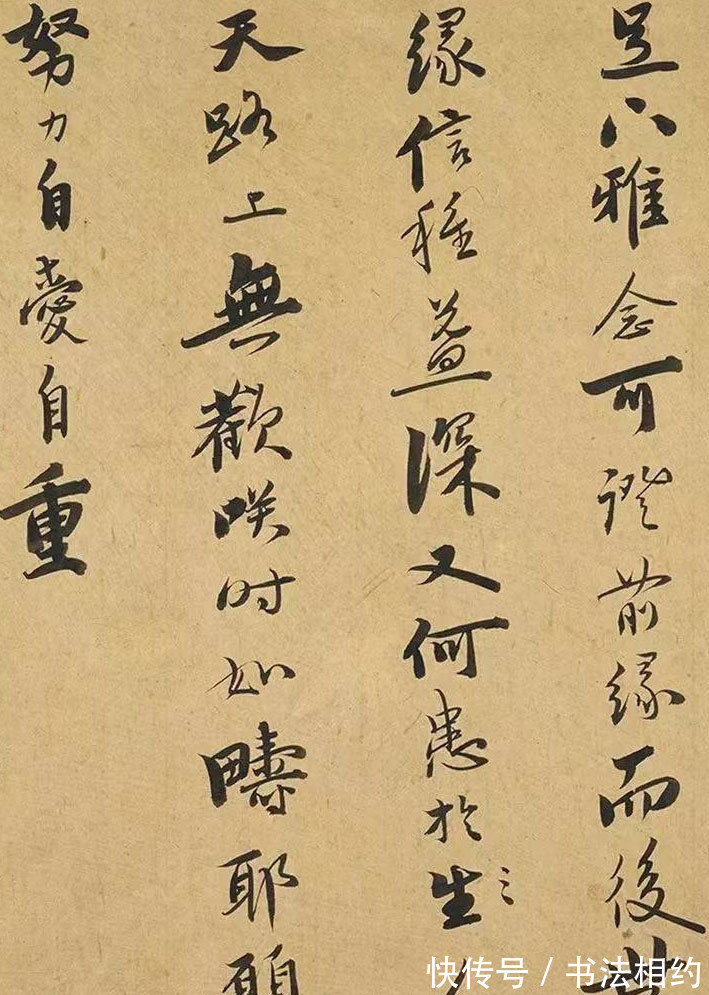 足下雅念可證前緣而後
緣信種益深又何患於生〻
天路上無歡咲时如疇耶願
努力自愛自重
快传号 / 书法相约